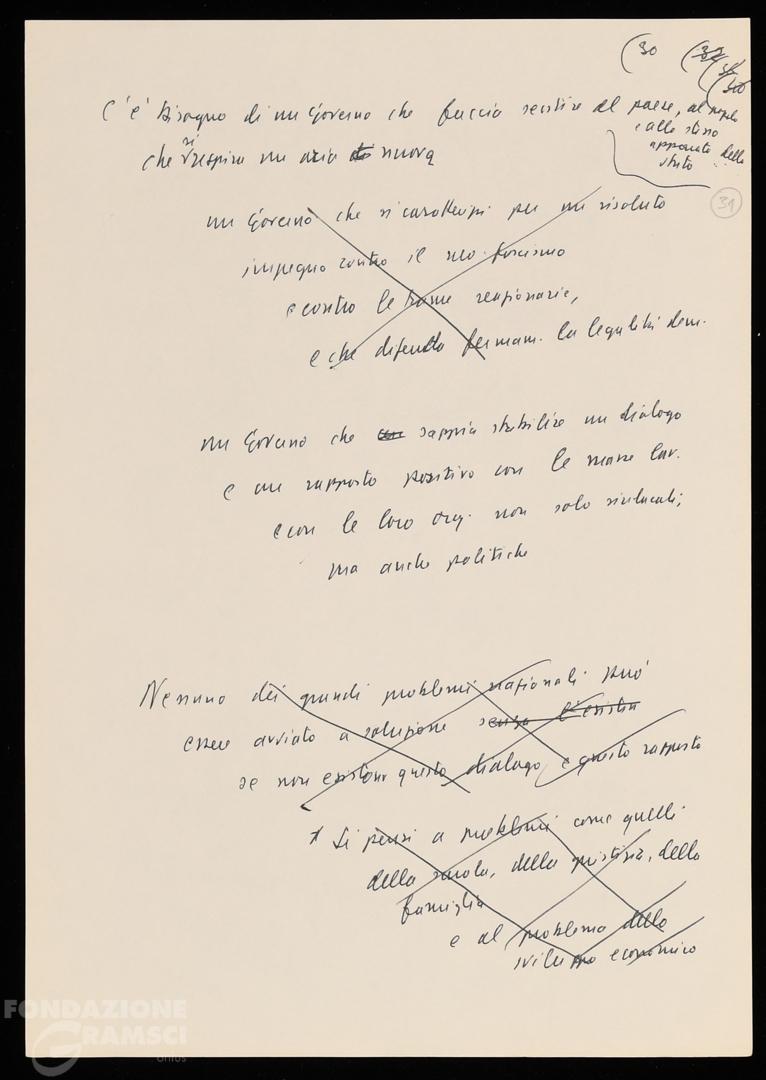 (30 (32 (31 (30
C'è bisogno di un Governo che faccia sentire al paese, al popolo
e allo stesso
apparato dello
stato
che si respira un aria di nuova
31
un Governo che si caratterizzi per un risoluto
impegno contro il neo-fascismo
e contro le trame reazionarie,
e che difenda fermam. la legalità dem.
un Governo che sappia stabilire un dialogo
e un rapporto positivo con le masse lav.
e con le loro org. non solo sindacali,
ma anche politiche
Nessuno dei grandi problemi nazionali può
essere avviato a soluzione senza l'esistere
se non esistono questo dialogo e questo rapporto
Si pensi a problemi come quelli
della scuola, della giustizia, della
famiglia
e al problema dello
sviluppo economico
FONDAZIONE
GRAMSCI
onlus